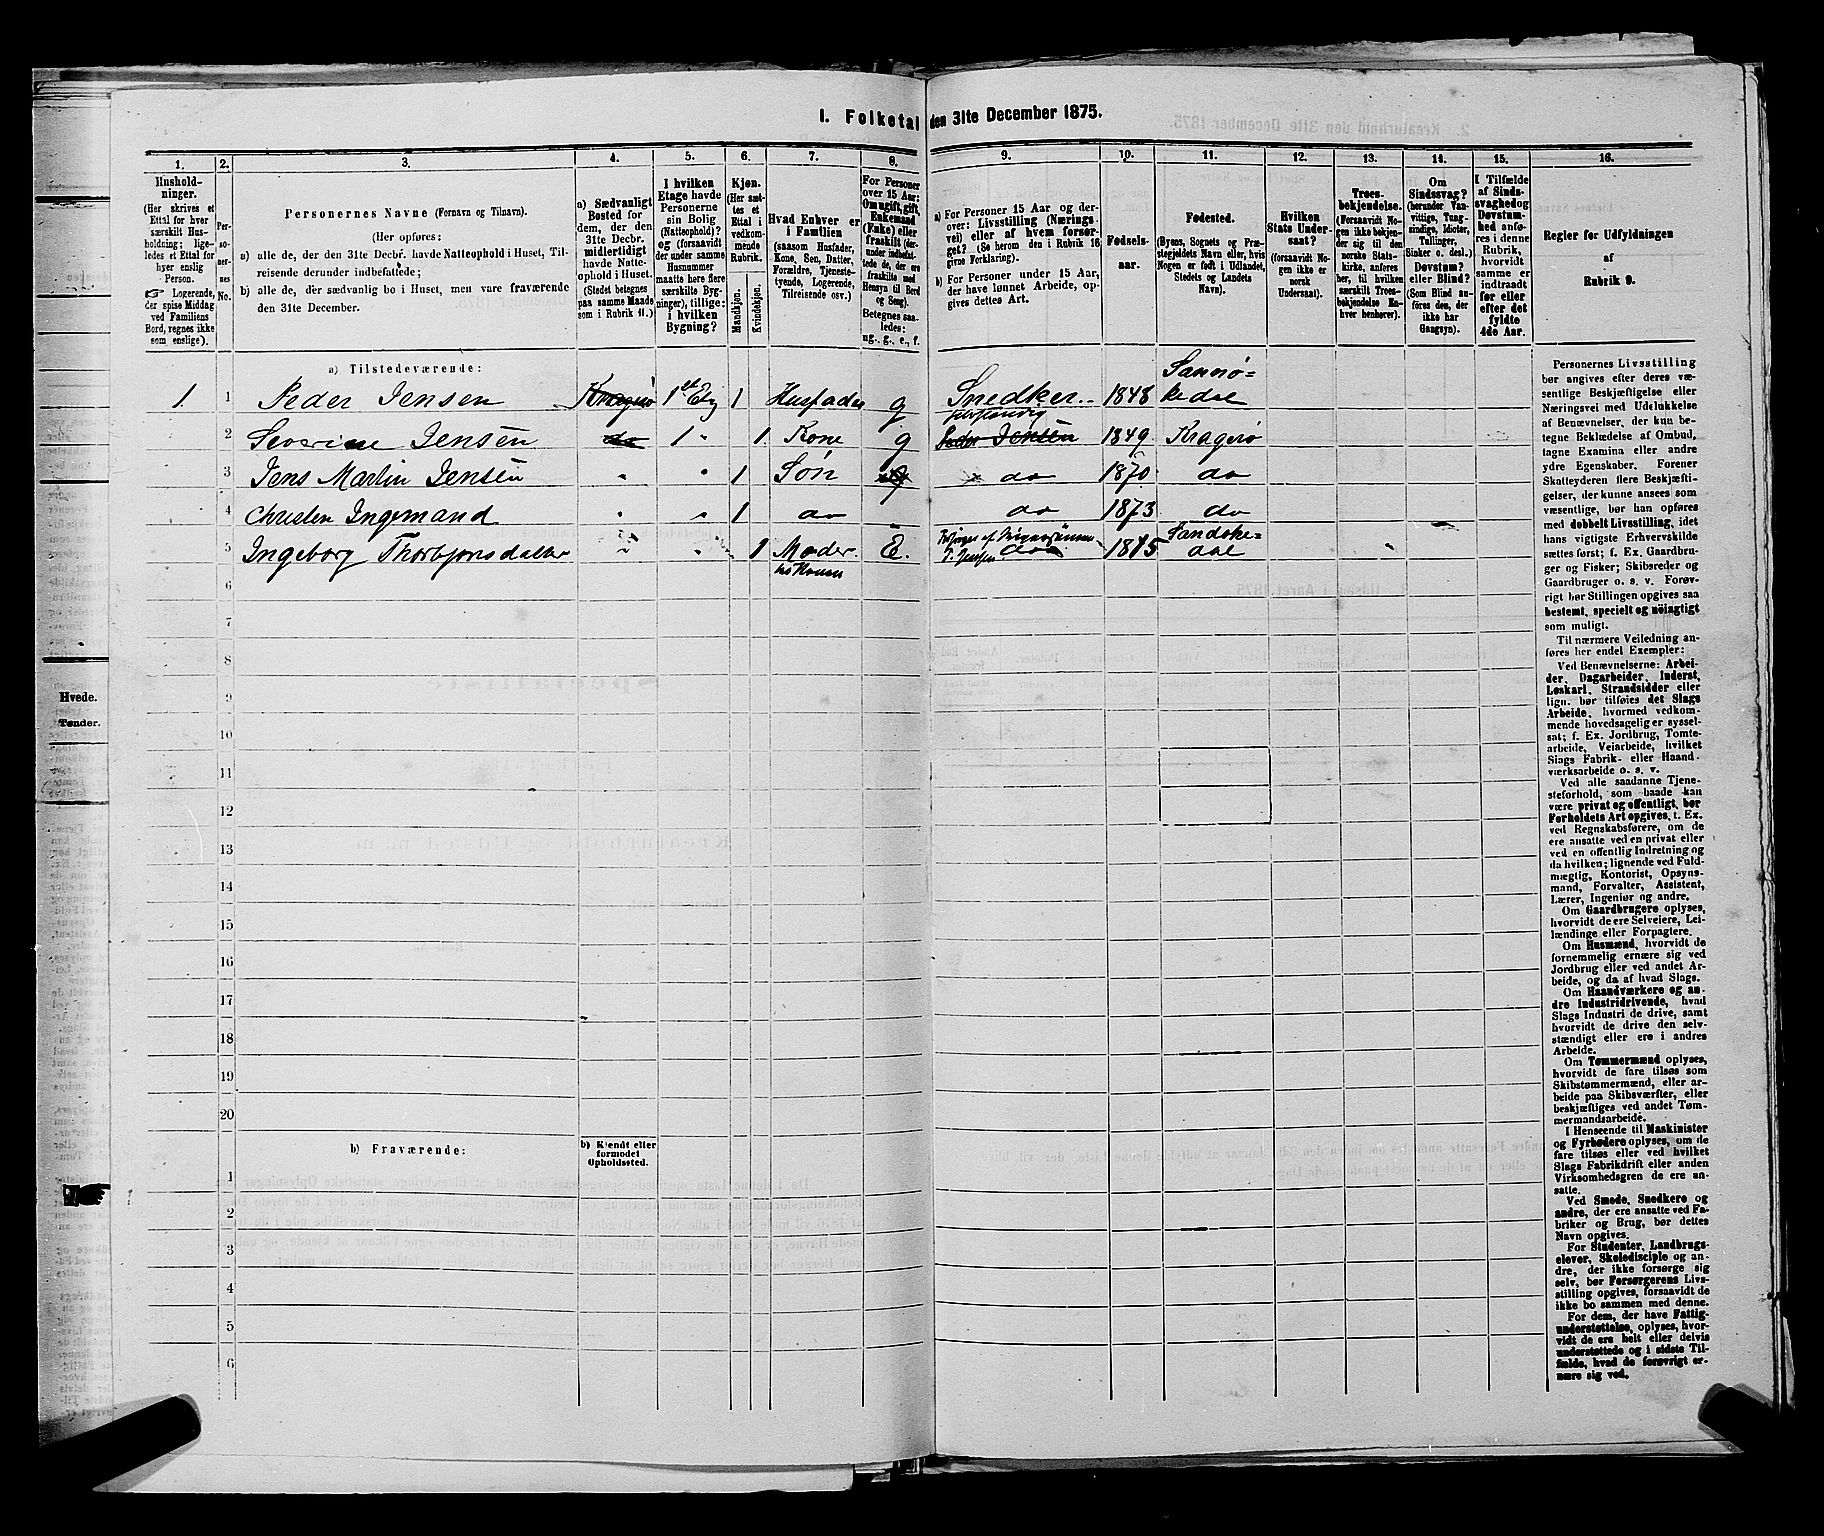 1. Folketal den 31te December 1875.
1. 2. 3. 4. 5. 6. 7. 8. 9. 10. 11. 12. 13. 14. 15. 16.
Hushold-
ninger.
(Her skrives et
Ettal for hver
særskilt Hus-
holdning; lige-
ledes et Ettal for
hver enslig
Person.
☞ Logerende,
der spise Middag
ved Familiens
Bord, regnes ikke
som enslige).
Per-
so-
ner-
nes
No.
Personernes Navne (Fornavn og Tilnavn).
(Her opføres:
a) alle de, der den 31te Decbr. havde Natteophold i Huset, Til-
reisende derunder indbefattede;
b) alle de, der sædvanlig bo i Huset, men vare fraværende
den 31te December.
a) Sædvanligt
Bosted for
dem, der den
31te Decbr.
midlertidigt
havde Natte-
ophold i Huset.
(Stedet betegnes
paa samme Maade
som i Rubrik 11.)
I hvilken
Etage havde
Personerne
sin Bolig
(Natteophold)?
og (forsaavidt
der under samme
Husnummer
maatte høre flere
særskilte Byg-
ninger), tillige:
i hvilken
Bygning?
Kjøn.
(Her sæt-
tes et
Ettal i
vedkom-
mende
Rubrik.
Mandkjøn.
Kvindekjøn.
Hvad Enhver er
i Familien
(saasom Husfader,
Kone, Søn, Datter,
Forældre, Tjeneste-
tyende, Logerende,
Tilreisende osv.)
For Personer
over 15 Aar:
Om ugift, gift,
Enkemand
(Enke) eller
fraskilt (der-
under indbefat-
tede de, der ere
fraskilte med
Hensyn til Bord
og Seng).
Betegnes saa-
ledes:
ug., g., e., f.
a) For Personer 15 Aar og der-
over: Livsstilling (Nærings-
vei) eller af hvem forsør-
get? (Se herom den i Rubrik 16
givne Forklaring).
b) For Personer under 15 Aar,
der have lønnet Arbeide, op-
gives dettes Art.
Fødsels-
aar.
Fødested.
(Byens, Sognets og Præ-
stegjeldets Navn eller, hvis
Nogen er født i Udlandet,
Stedets og Landets
Navn).
Hvilken
Stats Under-
saat?
(forsaavidt No-
gen ikke er
norsk
Undersaat).
Troes-
bekjendelse.
(Forsaavidt No-
gen ikke bekjen-
der sig til den
norske Stats-
kirke, anføres
her, til hvilken
særskilt Troes-
bekjendelse En-
hver henhører).
Om
Sindssvag?
(herunder Van-
vittige, Tung-
sindige, Idioter,
Tullinger,
Sinker o. desl.)
Døvstum?
eller Blind?
(Som Blind an-
føres den, der
ikke har
Gangsyn).
I Tilfælde
af Sinds-
svaghed og
Døvstum-
hed anfø-
res i denne
Rubrik,
hvorvidt
samme er
indtraadt
før eller
efter det
fyldte
4de Aar.
Regler for Udfyldningen
af
Rubrik 9.
a) Tilstedeværende:
1 1 Peder Jensen Kragerø 1st Etg 1 Husfader g Snedker selvstændig 1848 Sannø-
kedal
2 Severine Jensen do 1 " 1 Kone g Peder Jensen 1849 Kragerø
3 Jens Martin Jensen " " 1 Søn do 1870 do
4 Christen Ingemand " " 1 do do 1873 do
5 Ingeborg Thorbjønsdatter " " 1 Moder E. do 1815 Sandøke-
dal
til Konen
6
7
8
9
10
11
12
13
14
15
16
17
18
19
20
b) Fraværende:
b) Kjendt eller
formodet
Opholdssted.
1
2
3
4
5
6
Personernes Livsstilling
bør angives efter deres væ-
sentlige Beskjæftigelse eller
Næringsvei med Udelukkelse
af Benævnelser, der kun be-
tegne Beklædelse af Ombud,
tagne Examina eller andre
ydre Egenskaber. Forener
Skatteyderen flere Beskjæfti-
gelser, der kunne ansees som
væsentlige, bør han opføres
med dobbelt Livsstilling, idet
hans vigtigste Erhvervskilde
sættes først; f. Ex. Gaardbru-
ger og Fisker; Skibsreder og
Gaardbruger o. s. v. Forøv-
rigt bør Stillingen opgives saa
bestemt, specielt og nøiagtigt
som muligt.
Til nærmere Veiledning an-
føres her endel Exempler:
Ved Benævnelserne: Arbei-
der, Dagarbeider, Inderst,
Løskarl, Strandsidder eller
lign. bør tilføies det Slags
Arbeide, hvormed vedkom-
mende hovedsagelig er syssel-
sat; f. Ex. Jordbrug, Tomte-
arbeide, Veiarbeide, hvilket
Slags Fabrik- eller Haand-
værksarbeide o. s. v.
Ved alle saadanne Tjene-
steforhold, som baade kan
være privat og offentligt, bør
Forholdets Art opgives, t. Ex.
ved Regnskabsførere, om de
ere ansatte ved en privat eller
ved en offentlig Indretning og
da hvilken; lignende ved Fuld-
mægtig, Kontorist, Opsyns-
mand, Forvalter, Assistent,
Lærer, Ingeniør og andre.
Om Gaardbrugere oplyses,
hvorvidt de ere Selveiere, Lei-
lændinge eller Forpagtere.
Om Husmænd, hvorvidt de
fornemmelig ernære sig ved
Jordbrug eller ved andet Ar-
beide, og da af hvad Slags.
Om Haandværkere og an-
dre Industridrivende, hvad
Slags Industri de drive, samt
hvorvidt de drive den selv-
stændigt eller ere i andres
Arbeide.
Om Tømmermænd oplyses,
hvorvidt de fare tilsøs som
Skibstømmermænd, eller ar-
beide paa Skibsværfter, eller
beskjæftiges ved andet Tøm-
mermandsarbeide.
I Henseende til Maskinister
og Fyrbødere oplyses, om de
fare tilsøs eller ved hvilket
Slags Fabrikdrift eller anden
Virksomhedsgren de ere an-
satte.
Ved Smede, Snedkere og
andre, der ere ansatte ved Fa-
briker og Brug, bør dettes
Navn opgives.
For Studenter, Landbrugs-
elever, Skoledisciple og an-
dre, der ikke forsørge sig
selv, bør Forsørgerens Livs-
stilling opgives, forsaavidt de
ikke bo sammen med denne.
For dem, der have Fattig-
understøttelse, oplyses, hvor-
vidt de ere helt eller delvis
understøttede og i sidste Til-
fælde, hvad de forøvrigt er-
nære sig ved.
Hvede.
Tønder.